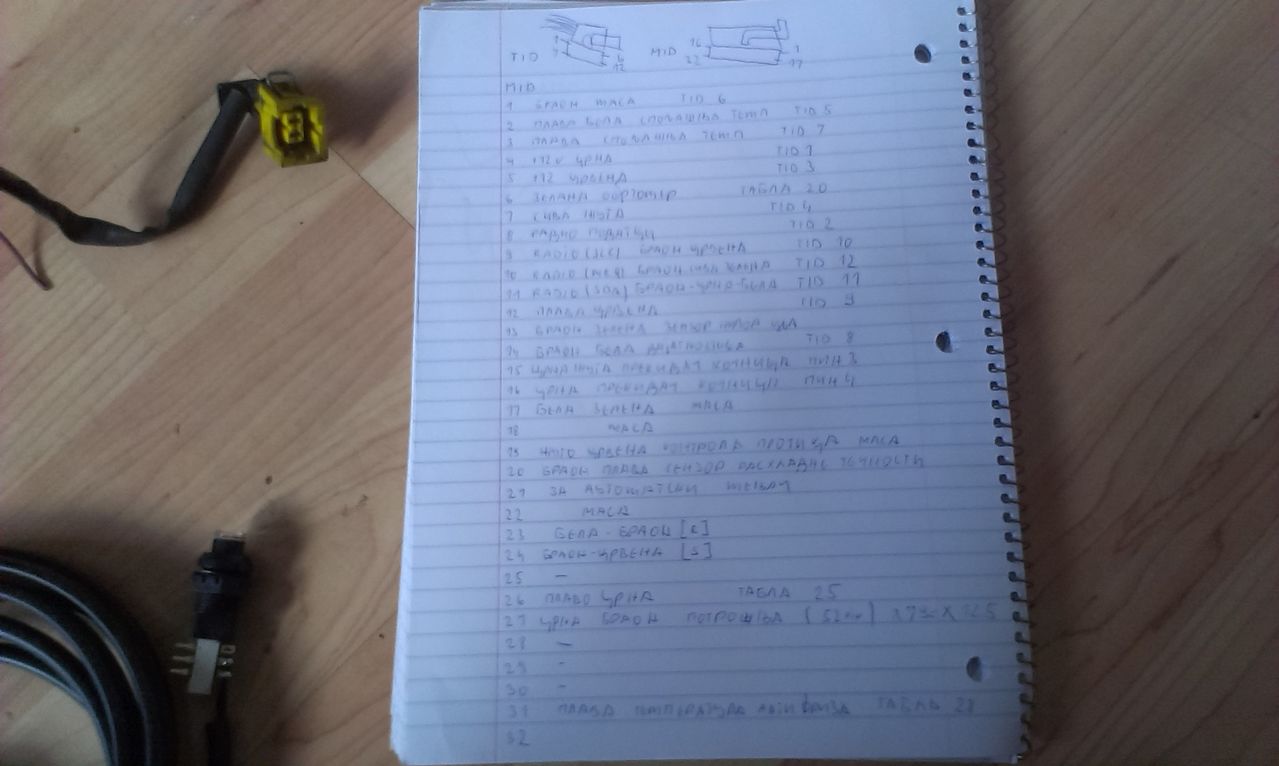 TID 1 7 6 12 MID 16 32 1 17
MID
1 БРАОН МАСА TID 6
2 ПЛАВА БЕЛА СПОЉАШЊА ТЕМП TID 5
3 ПЛАВА СПОЉАШЊА ТЕМП TID 7
4 +12V ЦРНА TID 1
5 +12 ЦРВЕНА TID 3
6 ЗЕЛЕНА ОБРТОМЕР ТАБЛА 20
7 СИВА ЖУТА TID 4
8 РАДИО ПОДАТЦИ TID 2
9 RADIO БРАОН ЦРВЕНА TID 10
10 RADIO БРАОН TID 12
11 RADIO (SDA) БРАОН-ЦРНА-БЕЛА TID 11
12 ПЛАВА ЦРВЕНА TID 9
13 БРАОН ЗЕЛЕНА СЕНЗОР
14 БРАОН БЕЛА ДИЈАГНОСТИКА TID 8
15 ЦРНА ЖУТА ПРЕКИДАЧ КОЧНИЦА ПИН 3
16 ЦРНА ПРЕКИДАЧ КОЧНИЦА ПИН 4
17 БЕЛА ЗЕЛЕНА МАСА
18 МАСА
19 ЖУТО ЦРВЕНА КОНТРОЛА МАСА
20 БРАОН ПЛАВА СЕНЗОР РАСХЛАДНЕ ТЕЧНОСТИ
21 ЗА АВТОМАТСКИ МЕЊАЧ
22 МАСА
23 БЕЛА-БРАОН
24 БРАОН-ЦРВЕНА
25 –
26 ПЛАВО ЦРНА ТАБЛА 25
27 ЦРНА БРАОН ПОТРОШЊА
28 –
29 -
30 -
31 ПЛАВА ТЕМПЕРАТУРА ТАБЛА
32